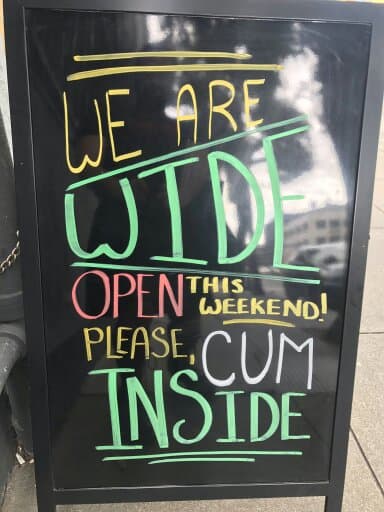 WE ARE
WIDE
OPEN THIS WEEKEND!
PLEASE, CUM
INSIDE